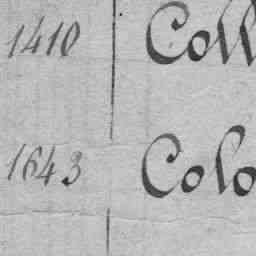 1410 Coll
1643 Colo